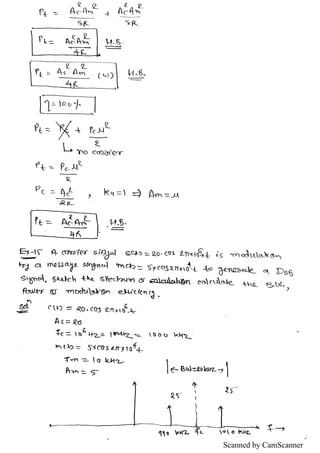 Pt = Ac²Am²/8R + Ac²Am²/8R
Pt = Ac²Am²/4R H.B.
Pt = Ac²Am²/4R (W) H.B.
η = 100%
Pt = Pc + Pcμ²/2
↳ no carrier
Pt = Pcμ²/2
Pc = Ac²/2R , Ka=1 ⇒ Am=μ
Pt = Ac²Am²/4R H.B.
Ex-15 A carrier signal c(t) = 20·cos 2π×10⁶t is modulation
by a message signal m(t) = 5×cos2π×10⁴t to generate a DSB
signal, sketch the spectrum & calculation calculate the B.W.,
Power & modulation efficiency.
Solⁿ c(t) = 20·cos 2π×10⁶t
Ac = 20
fc = 10⁶Hz = 1MHz = 1000 kHz
m(t) = 5×cos 2π×10⁴t
fm = 10 kHz
Am = 5
|←BW=20kHz→|
25 25
990 kHz fc 1010 kHz f→
Scanned by CamScanner